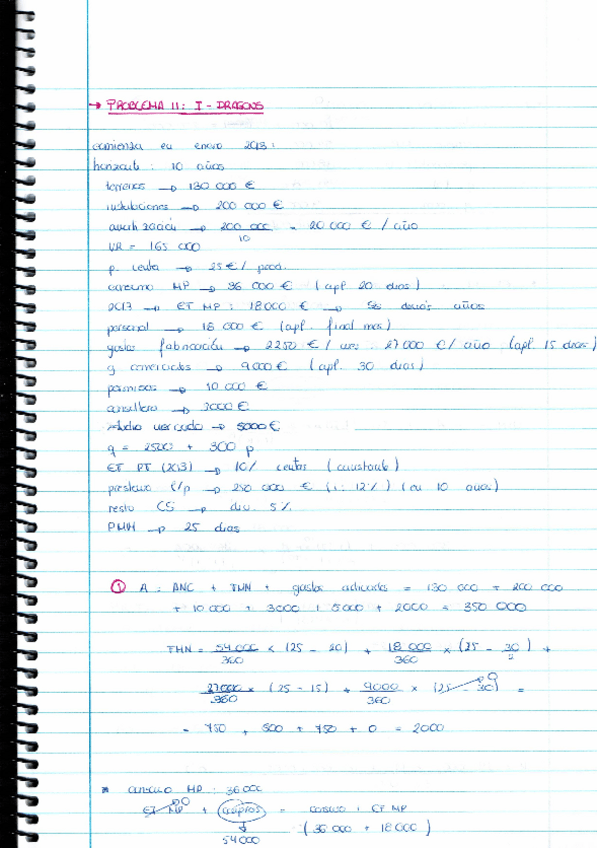 → PROBLEMA 11: I-DRAGONS
comienza en enero 2013:
horizonte: 10 años
terrenos → 130 000 €
instalaciones → 200 000 €
amortización → 200 000 / 10 = 20 000 € / año
VR = 165 000
p. venta → 25 € / prod.
consumo MP → 36 000 € (apl 20 dias)
2013 → EF MP: 18000 € → años
personal → 18 000 € (apl. final mes)
gastos fabricación → 2250 € / mes: 27 000 € / año (apl. 15 dias)
g comerciales → 9000 € (apl. 30 dias)
permisos → 10 000 €
→ 3000 €
estudio mercado → 5000 €
q = 2500 + 300 p
EF PT (2013) → 10% ventas (constante)
prestamo l/p → 250 000 € (i: 12%) (en 10 años)
resto CS → div. 5%
PMM → 25 dias
① A: ANC + FMN + gastos = 130 000 + 200 000
+ 10 000 + 3000 + 5000 + 2000 = 350 000
FMN = 54 000 / 360 × (25 - 20) + 18 000 / 360 × (25 - 30 / 2) +
27000 / 360 × (25 - 15) + 9000 / 360 × (25 - 30) 0 =
= 750 + 500 + 750 + 0 = 2000
* consumo MP: 36 000
+ compras = consumo + EF MP
↓
54 000 (36 000 + 18 000)